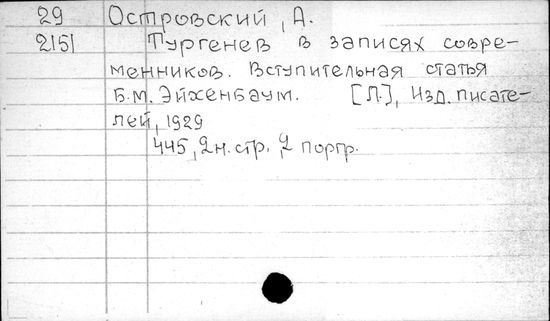 29 Островский, А.
2151 Тургенев в записях совре-
менников. Вступительная статья
Б.М. Эйхенбаум. [Л.], Изд. писате-
лей, 1929
445, 2 н. стр., 2 портр.